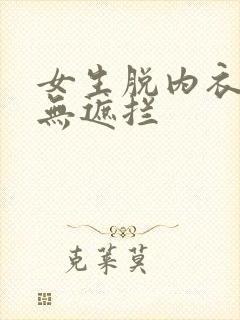 女生脱内衣
無遮拦
克莱莫